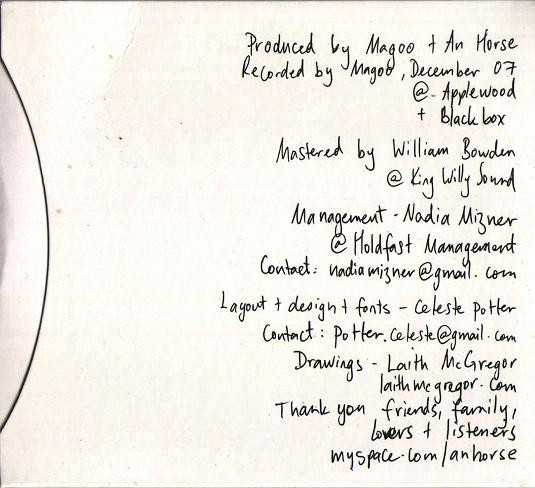 Produced by Magoo + An Horse
Recorded by Magoo, December 07
@ Applewood
+ Blackbox
Mastered by William Bowden
@ King Willy Sound
Management - Nadia Mizner
@ Holdfast Management
Contact: nadiamizner@gmail.com
Layout + design + fonts - Celeste Potter
Contact: potter.celeste@gmail.com
Drawings - Laith McGregor
laithmcgregor.com
Thank you friends, family,
lovers + listeners
myspace.com/anhorse